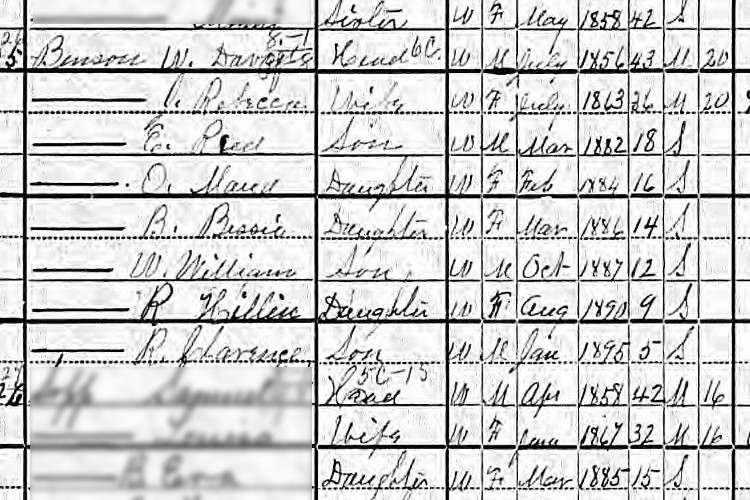 Sister W F May 1858 42 S
5 Benson W. Dav 8-1 Head 6 C. W M July 1856 43 M 20
Rebecca Wife W F July 1863 36 M 20
E. Reed Son W M Mar 1882 18 S
O. Maud Daughter W F Feb 1884 16 S
B. Bessie Daughter W F Mar 1886 14 S
W. William Son W M Oct 1887 12 S
R Daughter W F Aug 1890 9 S
R. Clarence Son W M Jan 1895 5 S
Head 5 C-15 W M Apr 1858 42 M 16
Wife W F June 1867 32 M 16
Daughter W F Mar 1885 15 S